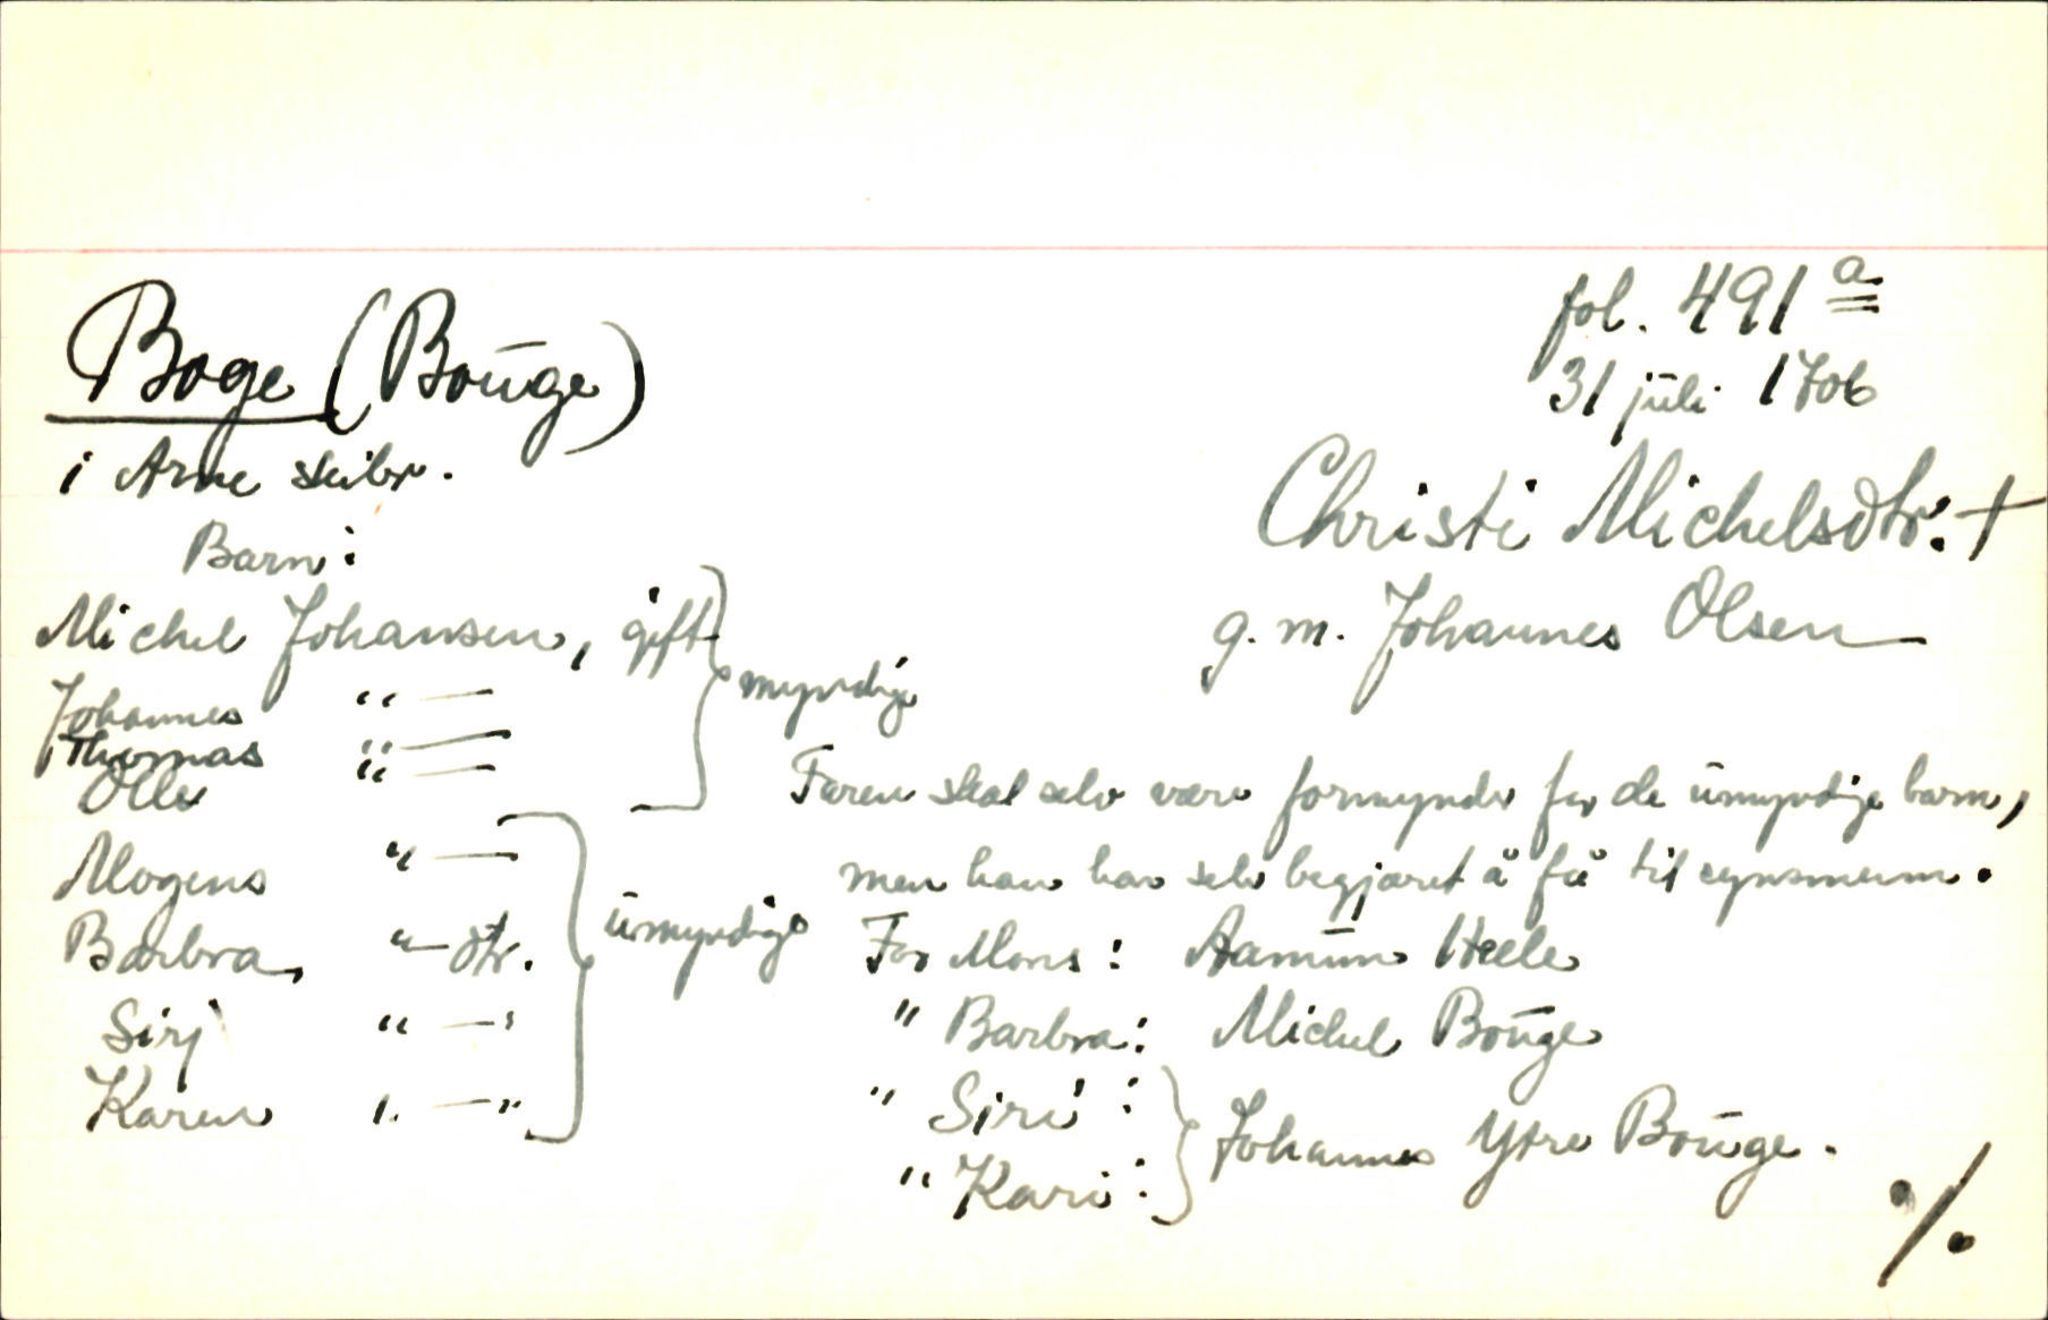 fol. 491 a
31 juli 1706
Boge (Bouge)
i Arne skibr.
Christi Michelsdtr. +
g. m. Johannes Olsen
Barn:
Michel Johansen, gift
Johannes " —
Thomas " —
Olle " —
myndige
Mogens " —
Barbra " — dtr.
Sirj " — "
Karen " — "
umyndige
Faren skal selv være formynder for de umyndige barn,
men han har selv begjæret å få tilsynsmenn.
For Mons: Aamun Heele
" Barbra: Michel Bouge
" Siri:
" Kari:
Johannes Ytre Bouge.
./.